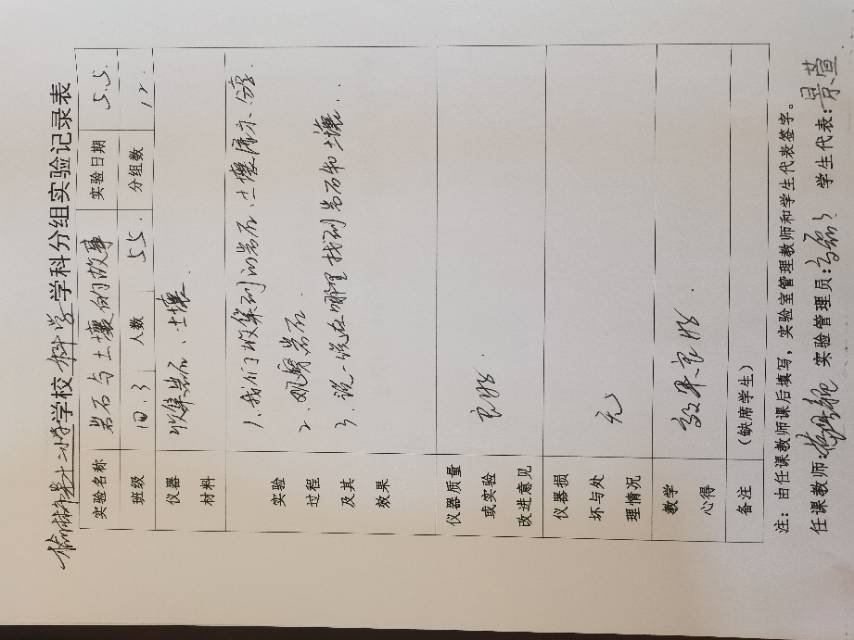 榆林市第十二小学学校 科学 学科分组实验记录表
实验名称 岩石与土壤的故事 实验日期 5.5.
班级 四.3 人数 55. 分组数 12.
仪器材料 收集岩石、土壤
实验过程及其效果
1、我们收集到的岩石、土壤展示、分享.
2、观察岩石.
3、说一说在哪里找到岩石和土壤..
仪器质量或实验改进意见 良好.
仪器损坏与处理情况 无
教学心得 效果良好.
备注 (缺席学生)
注：由任课教师课后填写，实验室管理教师和学生代表签字。
任课教师: 实验管理员: 学生代表:景萱